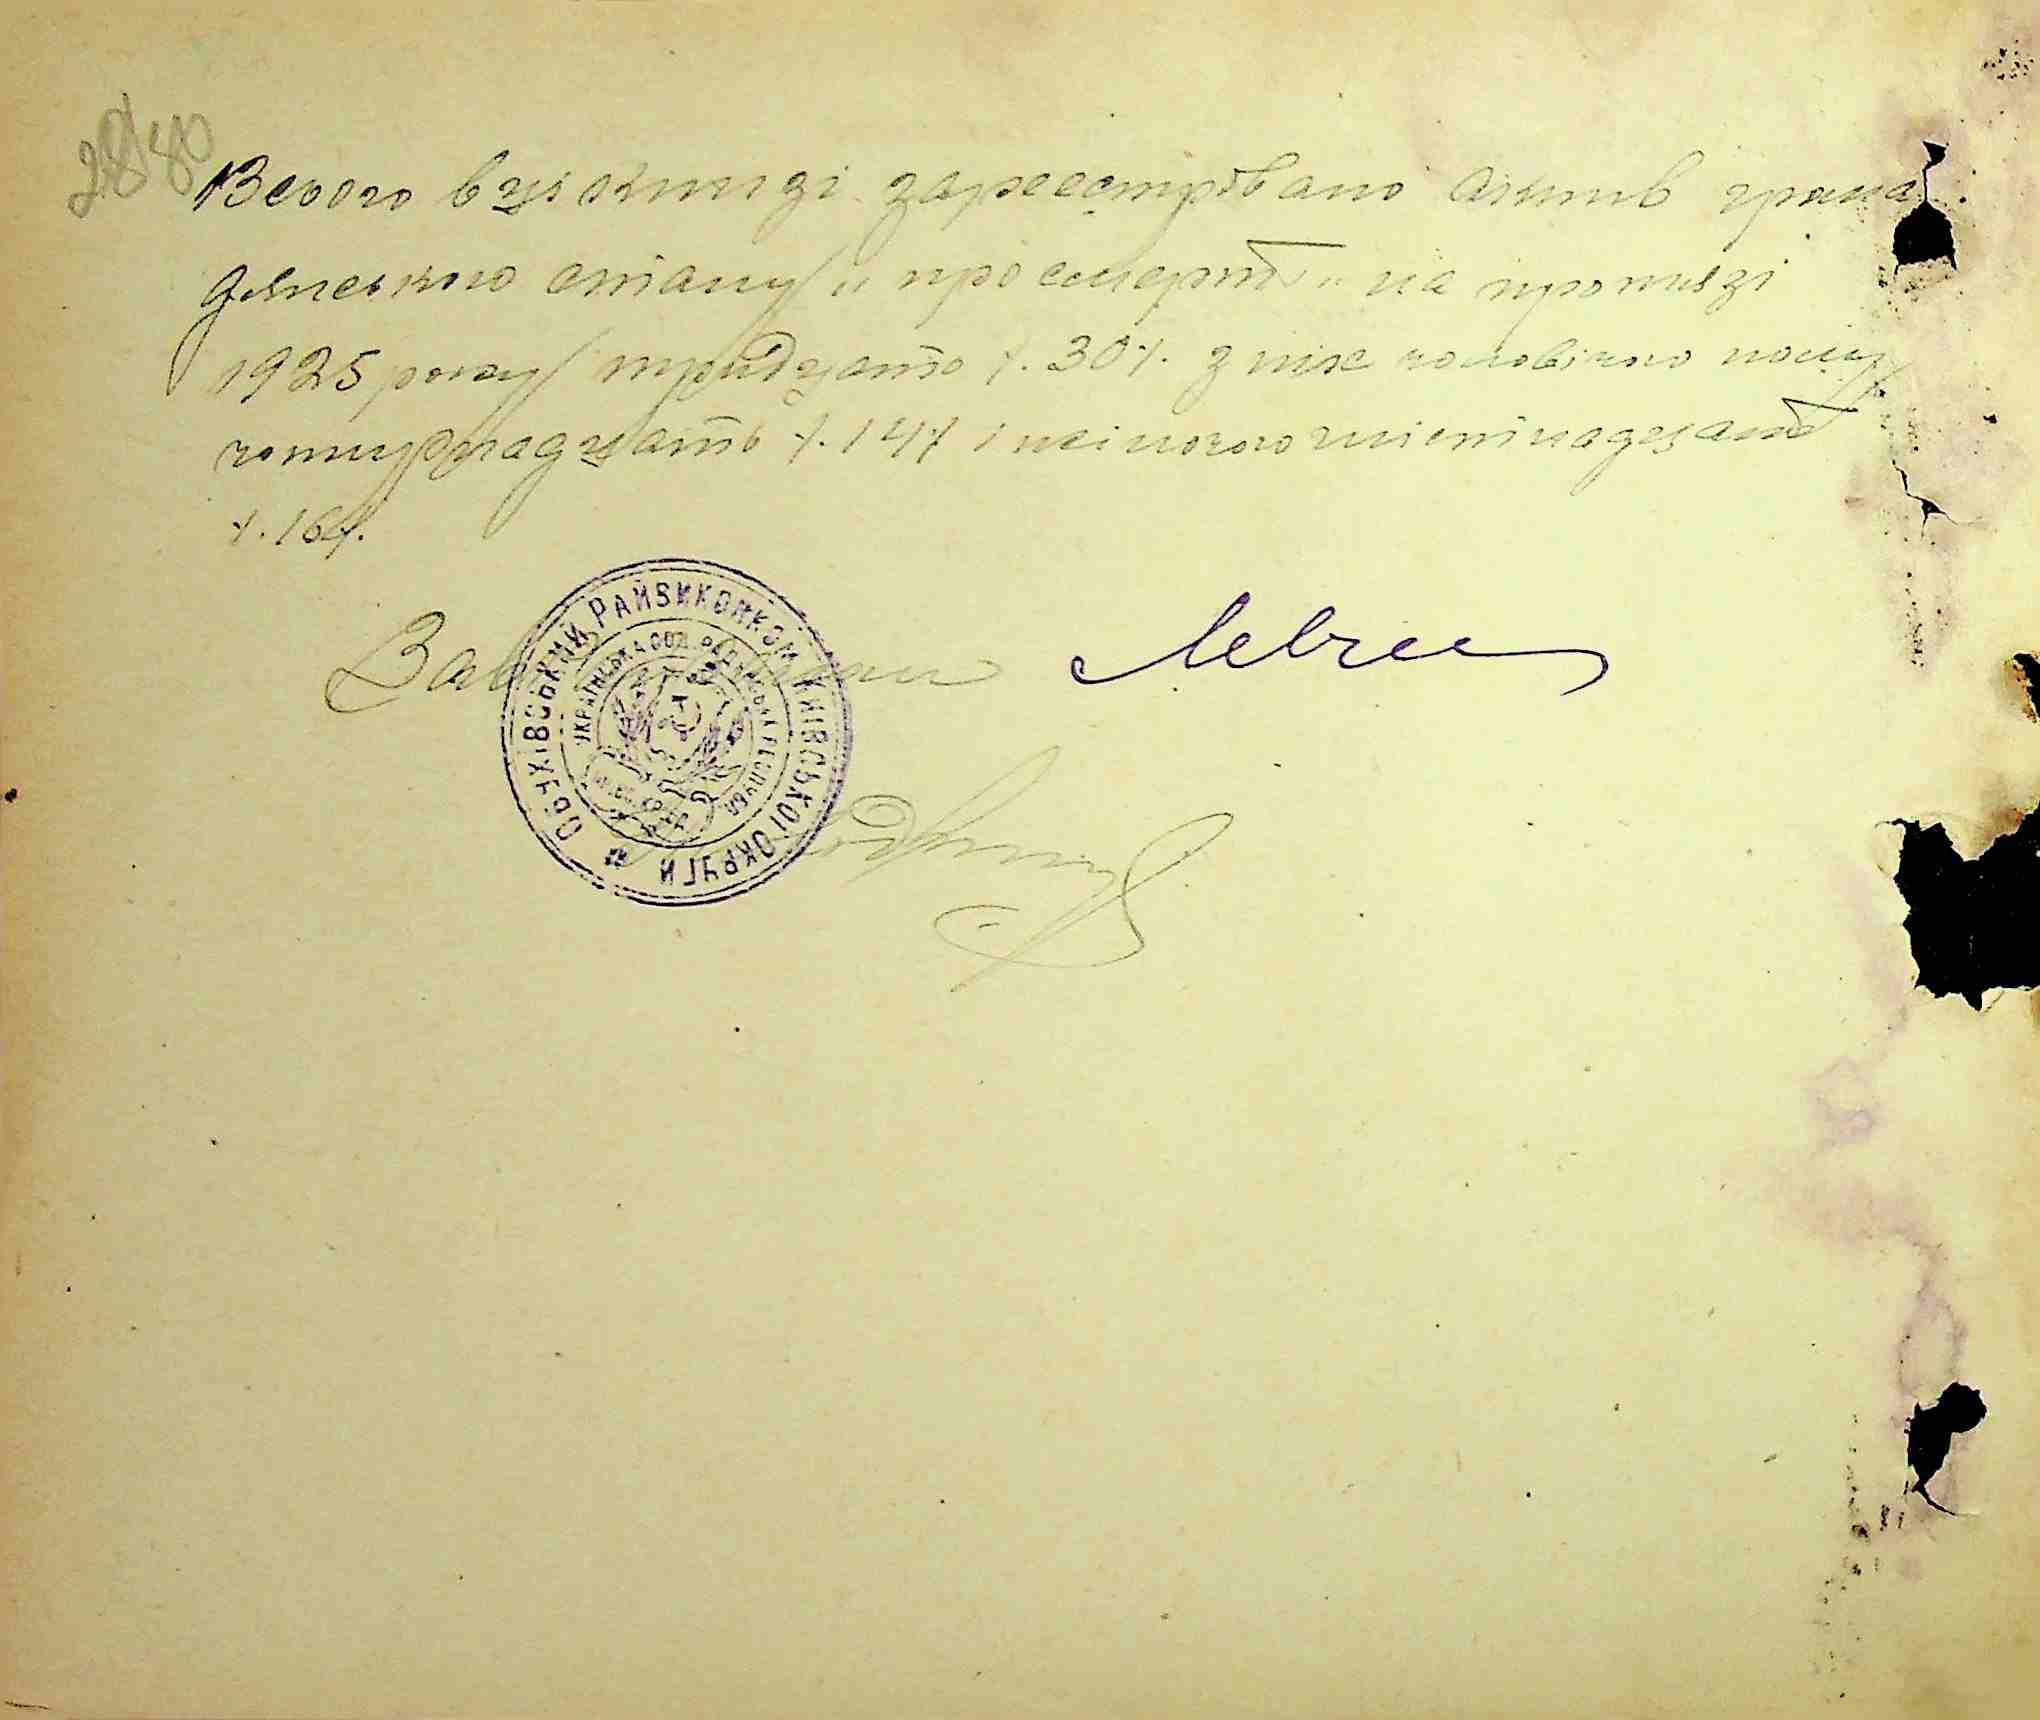 Всього в ція книзі зареєстровано актів грома-
дянського стану „про смерть" на протязі
1925 року тридцять /.30/. з них чоловічого полу
чотирнадцять /.14/ і жіночого шістнадцять
/.16/.
ОБУХІВСЬКИЙ РАЙВИКОНКОМ КИЇВСЬКОІ ОКРУГИ
УКРАЇНСЬКА СОЦ. РАДЯНСЬКА РЕСПУБ